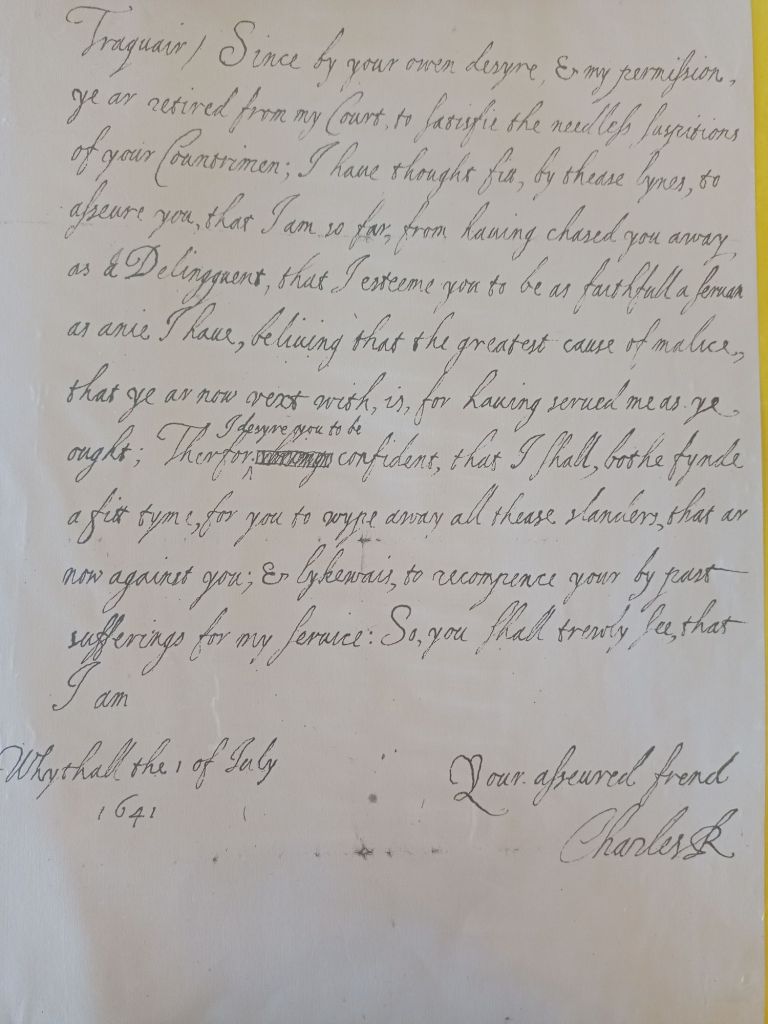 Traquair / Since by your owen desyre, & my permission,
ye ar retired from my Court, to satisfie the needless suspitions
of your Countrimen; I haue thought fitt, by thease lynes, to
asseure you, that I am so far, from hauing chased you away
as a Delingquent, that I esteeme you to be as faithfull a seruan
as anie I haue, beliuing that the greatest cause of malice,
that ye ar now vext with, is, for hauing serued me as ye
I desyre you to be
ought; Therfor confident, that I shall, bothe fynde
a fitt tyme, for you to wype away all thease slanders, that ar
now against you; & lykewais, to recompence your by past
sufferings for my seruice: So, you shall trewly see, that
I am
Whythall the 1 of July
1641
Your asseured frend
Charles R